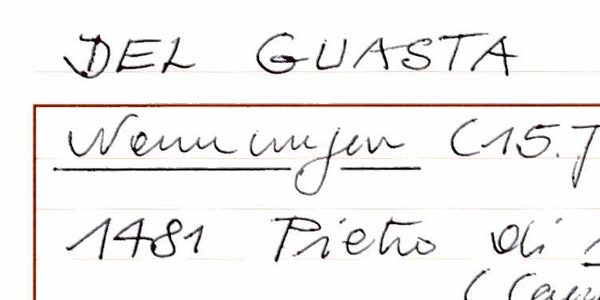 DEL GUASTA
Nennungen (15.J
1481 Pietro di